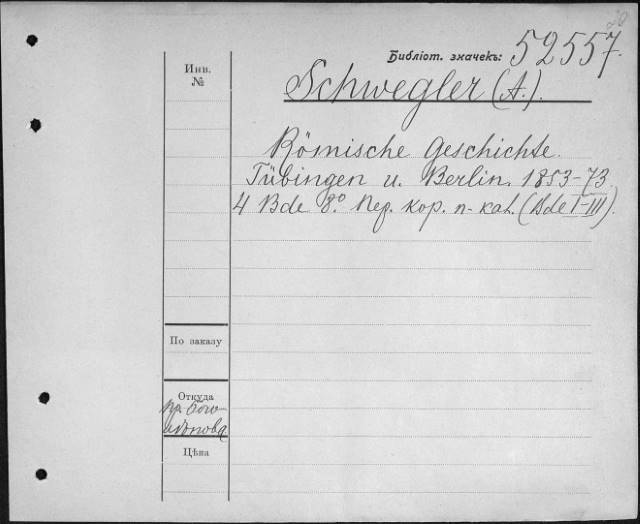 20
Библіот. значекъ: 52557.
Инв.
№
Schwegler (A.).
Römische Geschichte.
Tübingen u. Berlin. 1853-73.
4 Bde 8.º Пер. кор. п-кал. (Bde I-III).
По заказу
Откуда
Цѣна